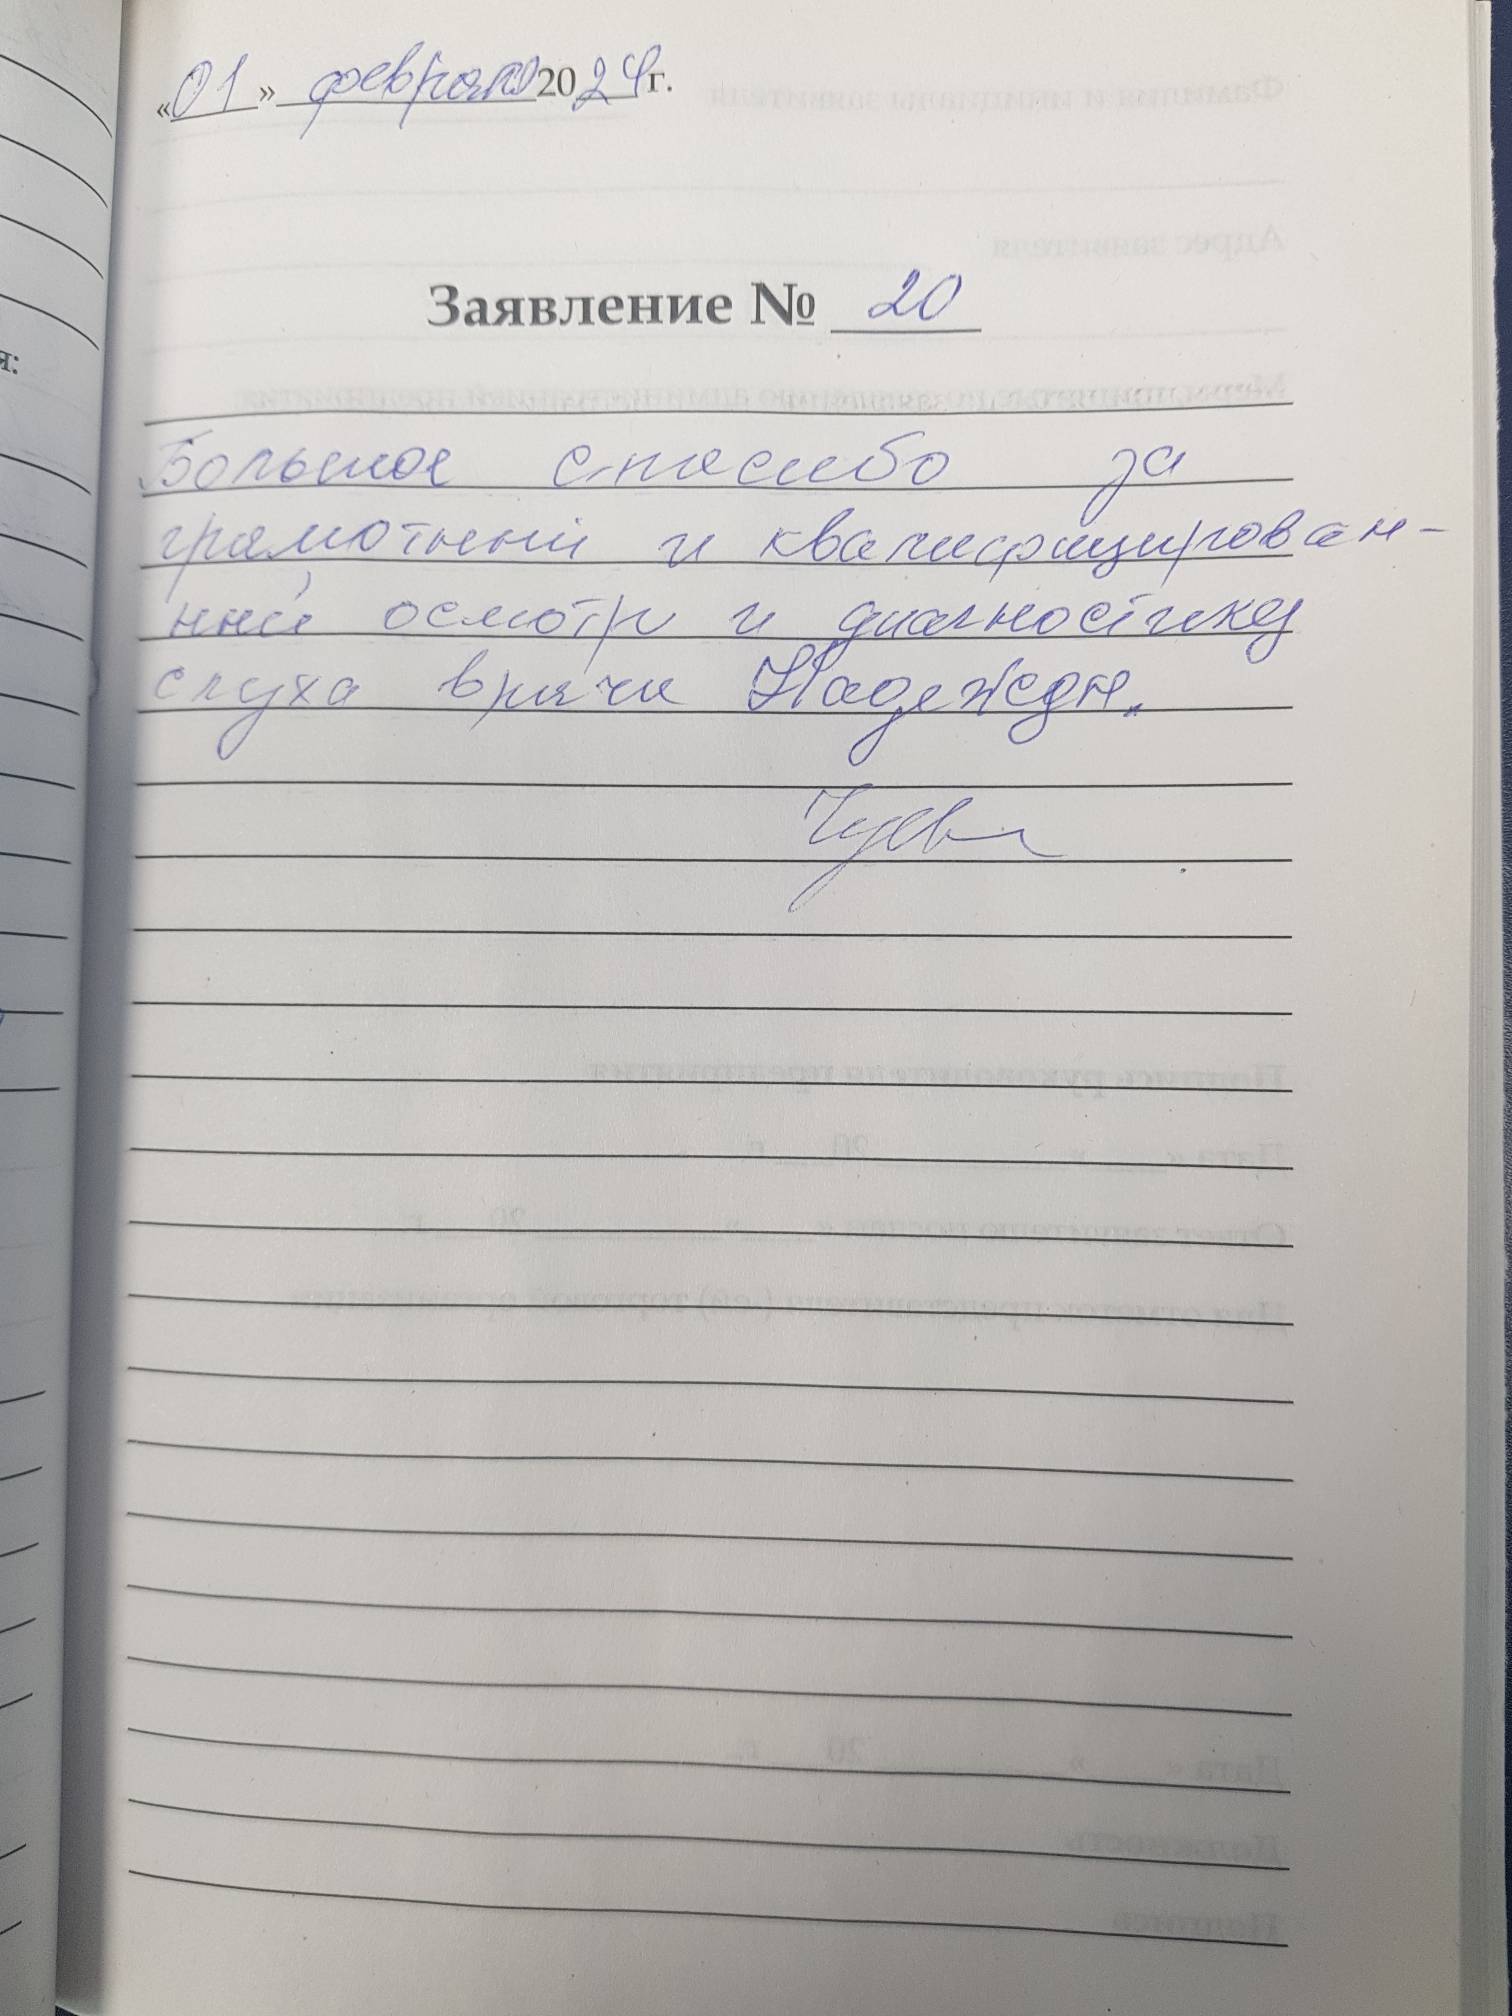 «01» февраля 2024 г.
Заявление № 20
Большое спасибо за
грамотный и квалифицирован-
ный осмотр и диагностику
слуха врачу Надежде.
я: